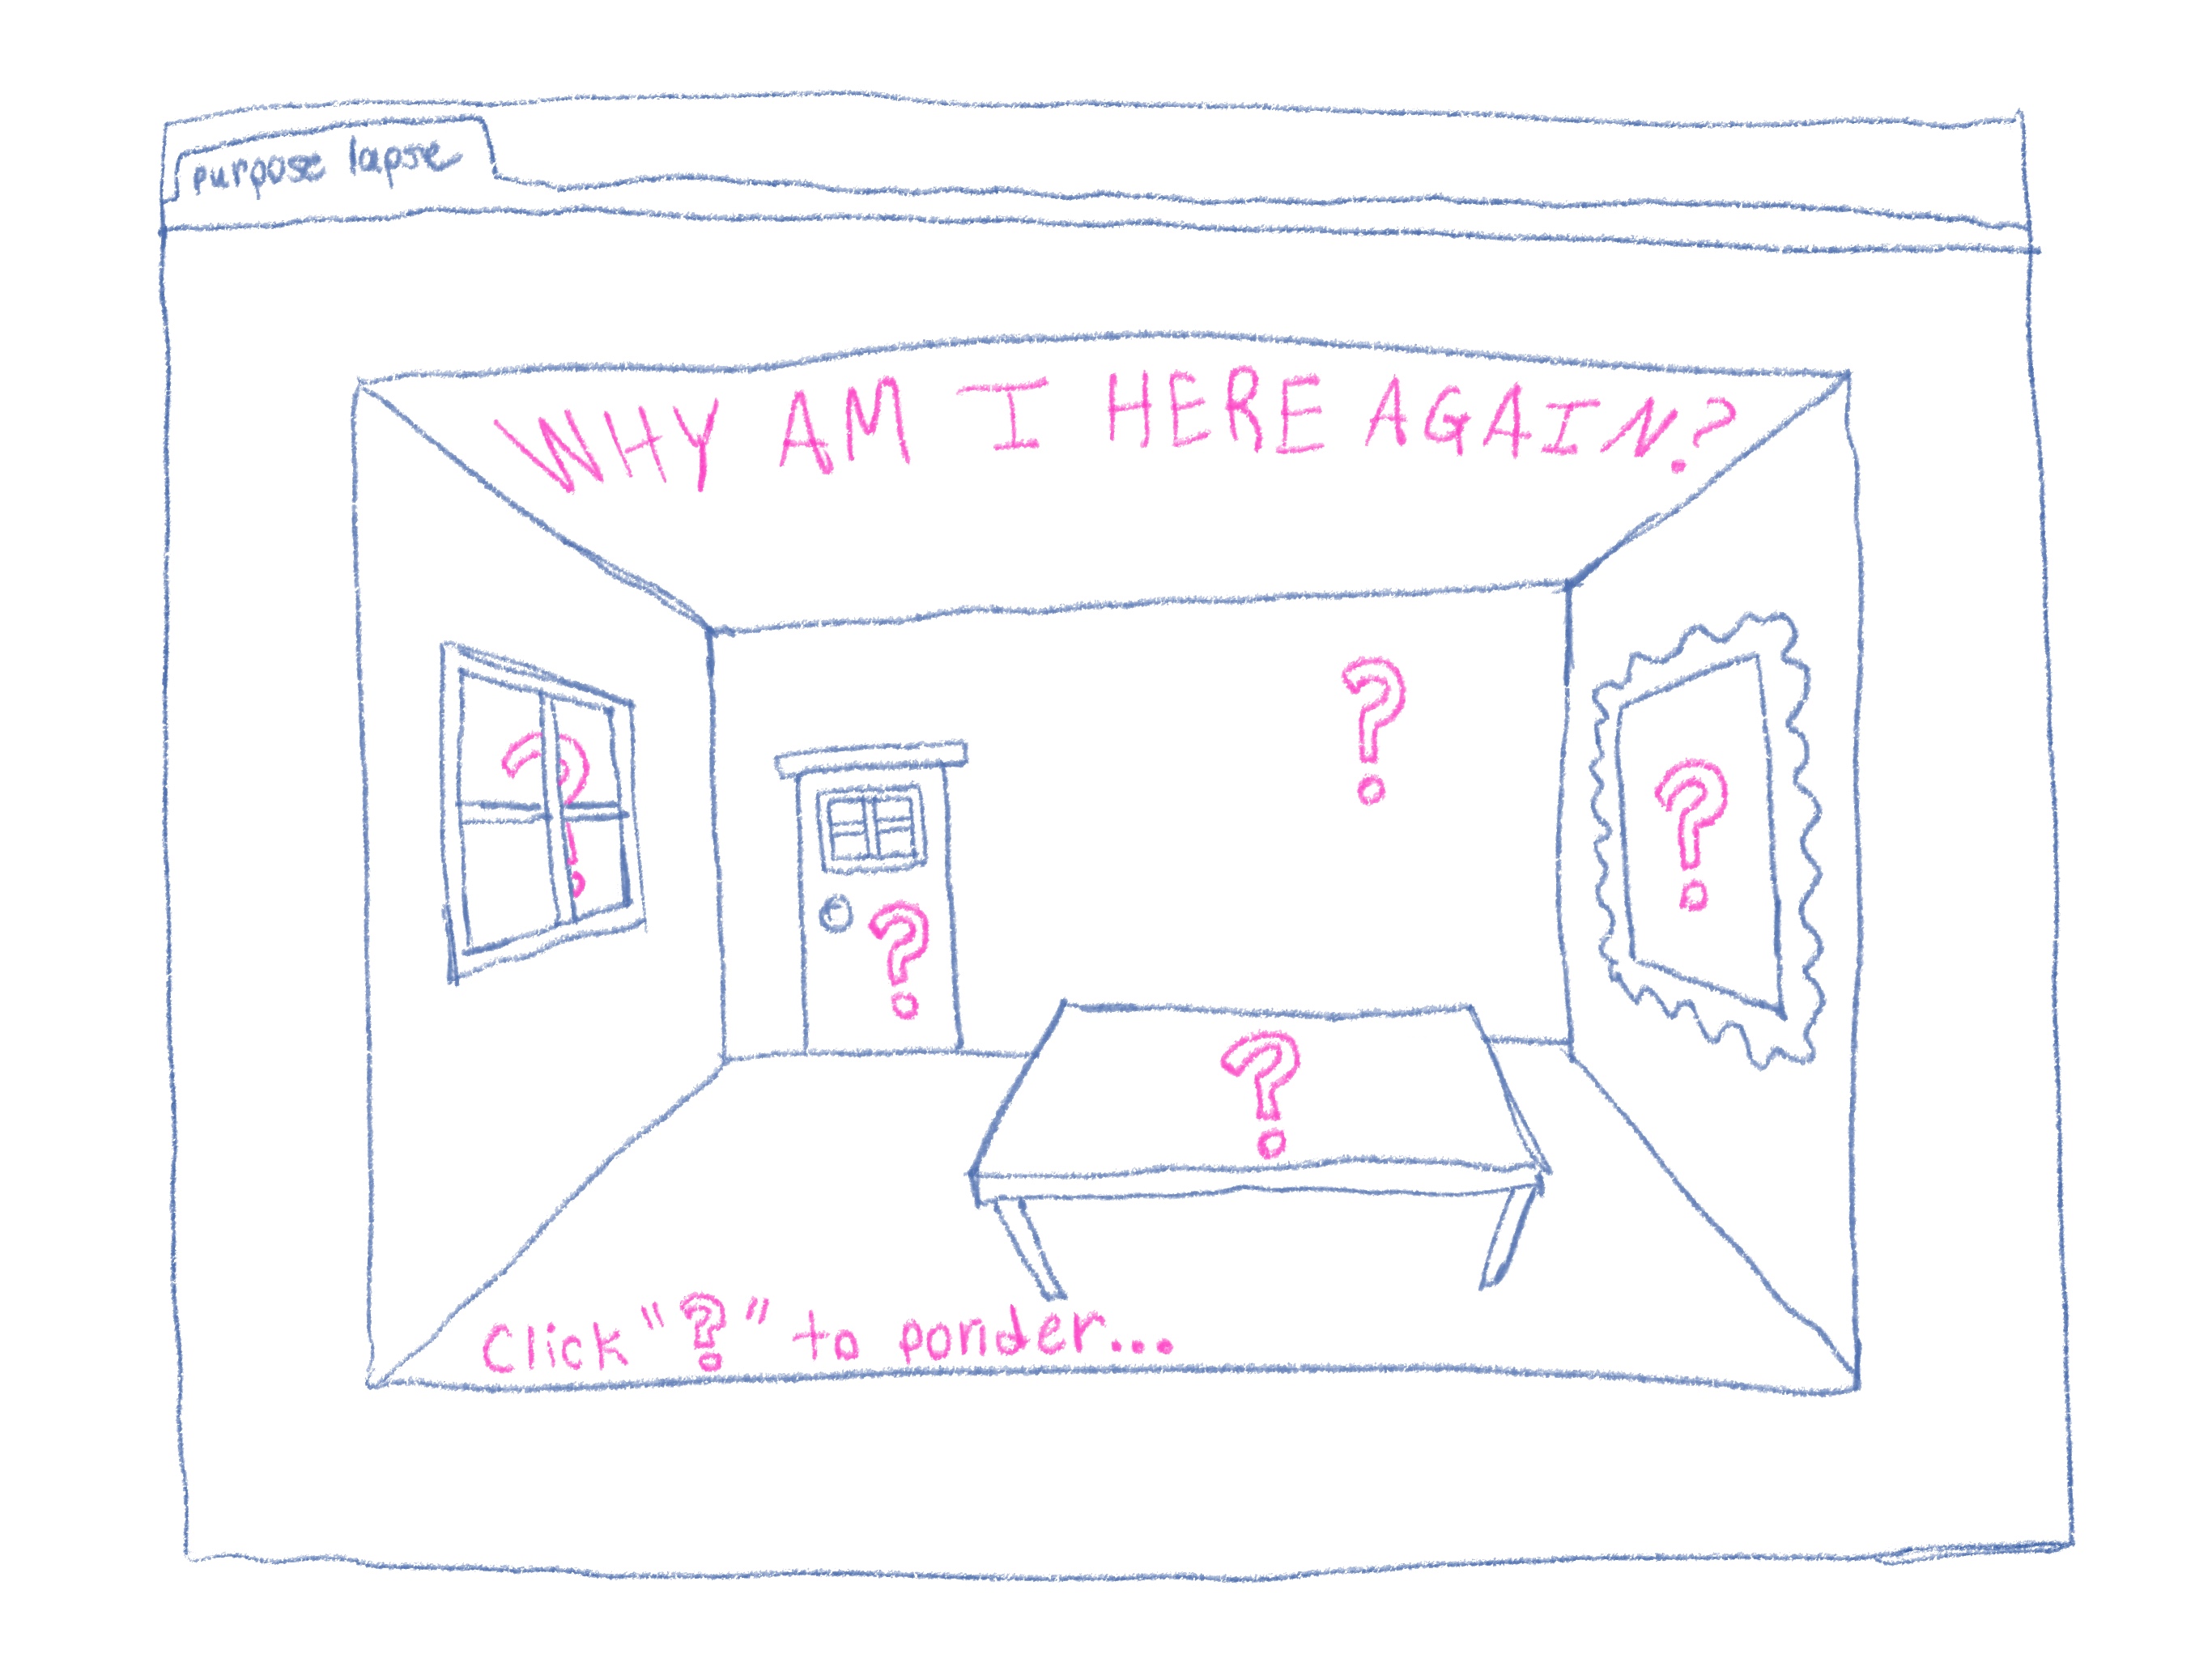 purpose lapse
WHY AM I HERE AGAIN?
?
?
?
?
?
Click "?" to ponder...